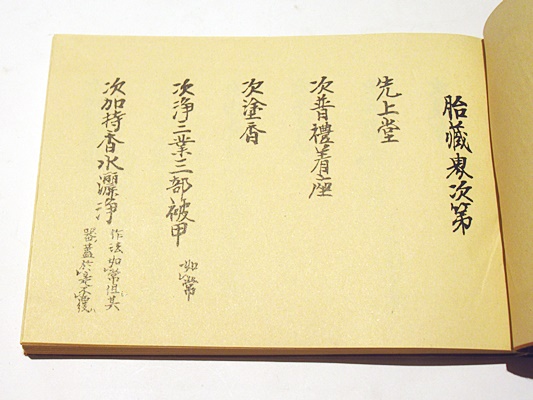 胎藏次第
先上堂
次普禮着座
次塗香
次淨三業三部被甲 如常
次加持香水灑淨 作法如常但其
器蓋於